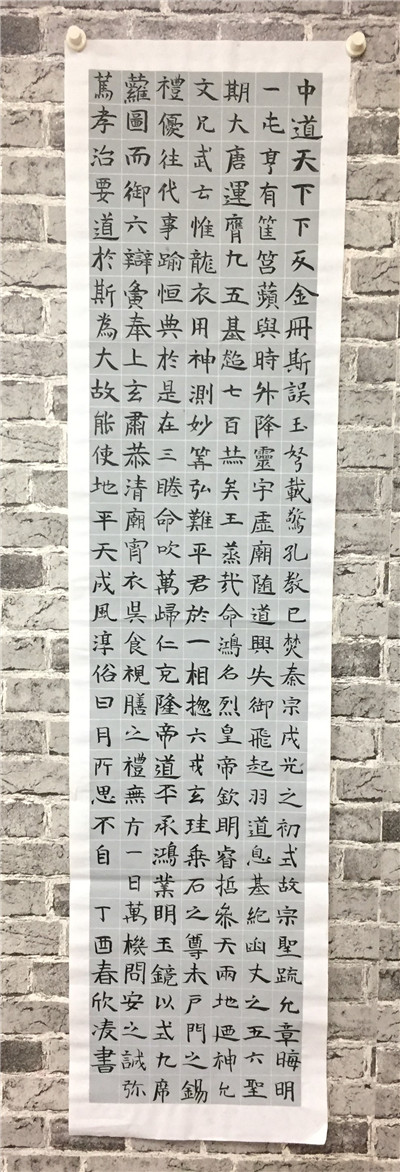 中道天下下反金冊斯誤玉弩載驚孔教已焚秦宗戌光之初式故宗聖疏允章晦明
一屯亨有筐筥蘋與時升降靈宇虛廟隨道興失御飛起羽道息基絕凶丈之五六聖
期大唐運膺九五基超七百恭矣王蒸哉命鴻名烈皇帝欽明睿哲參天兩地迺神允
文允武去惟龍衣用神測妙筭弘難平君於一相揔六戎玄珪乘石之尊未戶門之錫
禮優往代事踰恒典於是在三睠命吹萬歸仁克隆帝道平承鴻業明玉鏡以式九席
蘿圖而御六辯夤奉上玄肅恭清廟宵衣昃食視膳之禮無方一日萬機問安之誠弥
篤孝治要道於斯為大故能使地平天成風淳俗曰月所思不自 丁酉春欣凌書